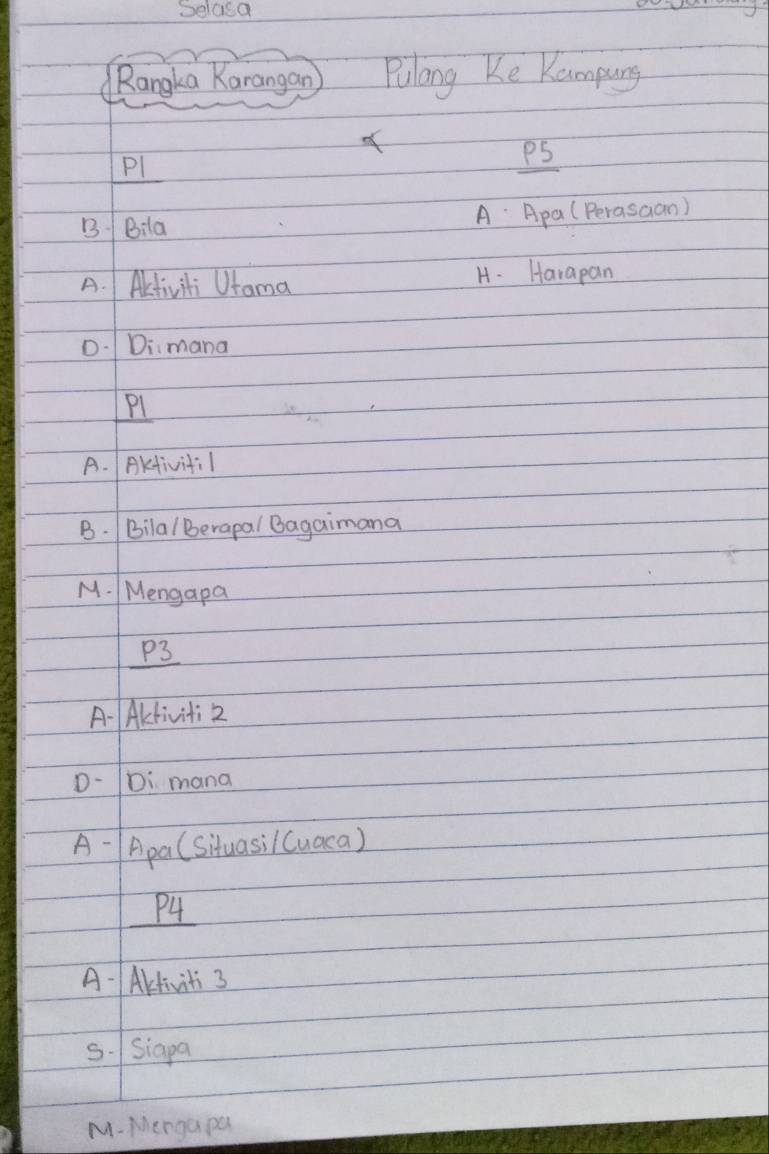 Selasa
Rangka Karangan Pulang Ke Kampung
P1
B. Bila
A. Aktiviti Utama
D. Di mana
P1
A. Aktiviti 1
B. Bila/Berapa/Bagaimana
M. Mengapa
P3
A- Aktiviti 2
D- Di mana
A- Apa (Situasi/Cuaca)
P4
A- Aktiviti 3
S. Siapa
M. Mengapa
P5
A. Apa (Perasaan)
H. Harapan